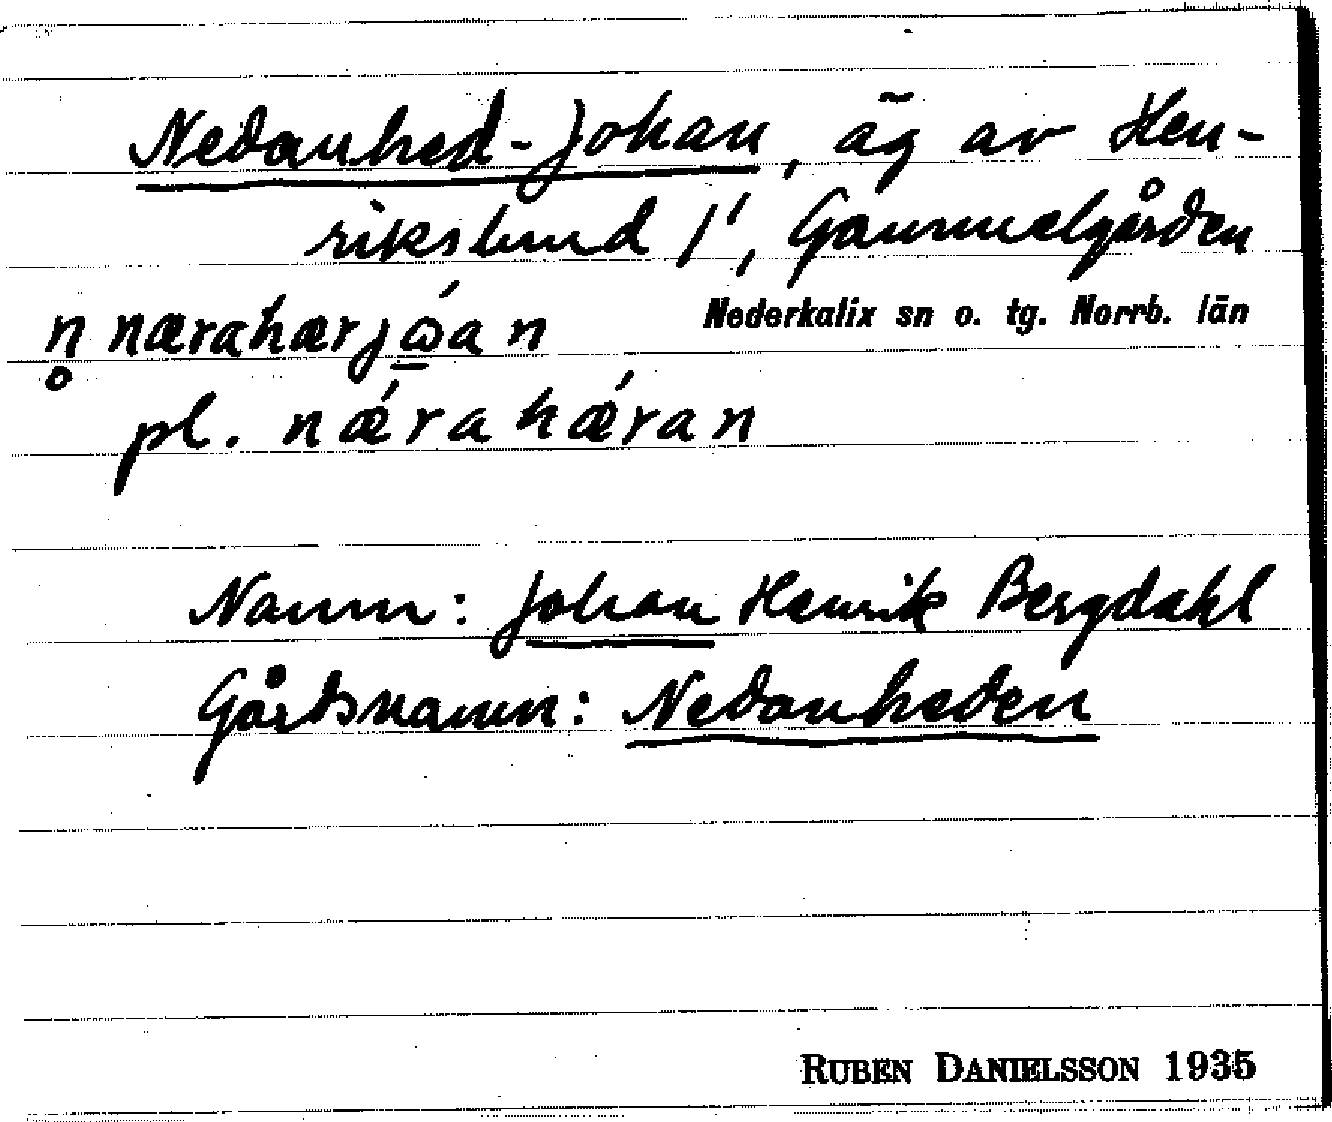 Nedanhed-Johan, äg av Hen-
rikslund 1¹, Gammelgården
Nederkalix sn o. tg. Norrb. län
n̥ nærahærjώ̱an
pl. nǽrahǽran
Namn: Johan Henrik Bergdahl
Gårdsnamn: Nedanheden
RUBEN DANIELSSON 1935